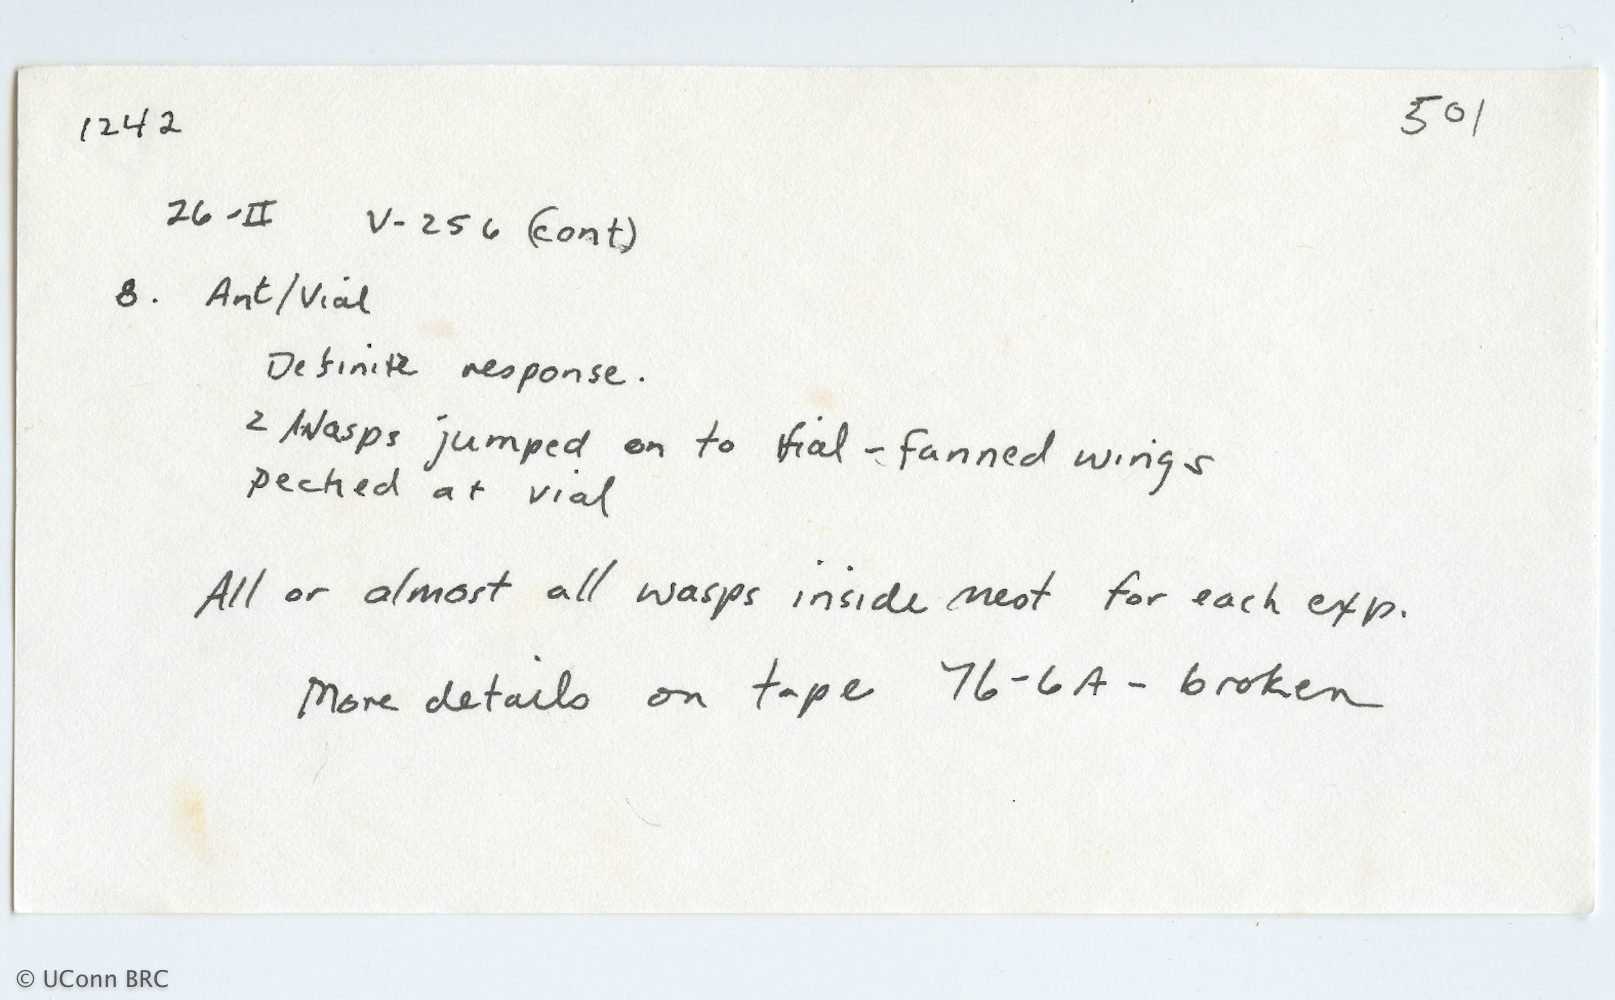 1242 501
26-II V-256 (cont)
8. Ant/Vial
Definite response.
2 Wasps jumped on to vial - fanned wings
pecked at vial
All or almost all wasps inside nest for each exp.
More details on tape 76-6A - broken
© UConn BRC